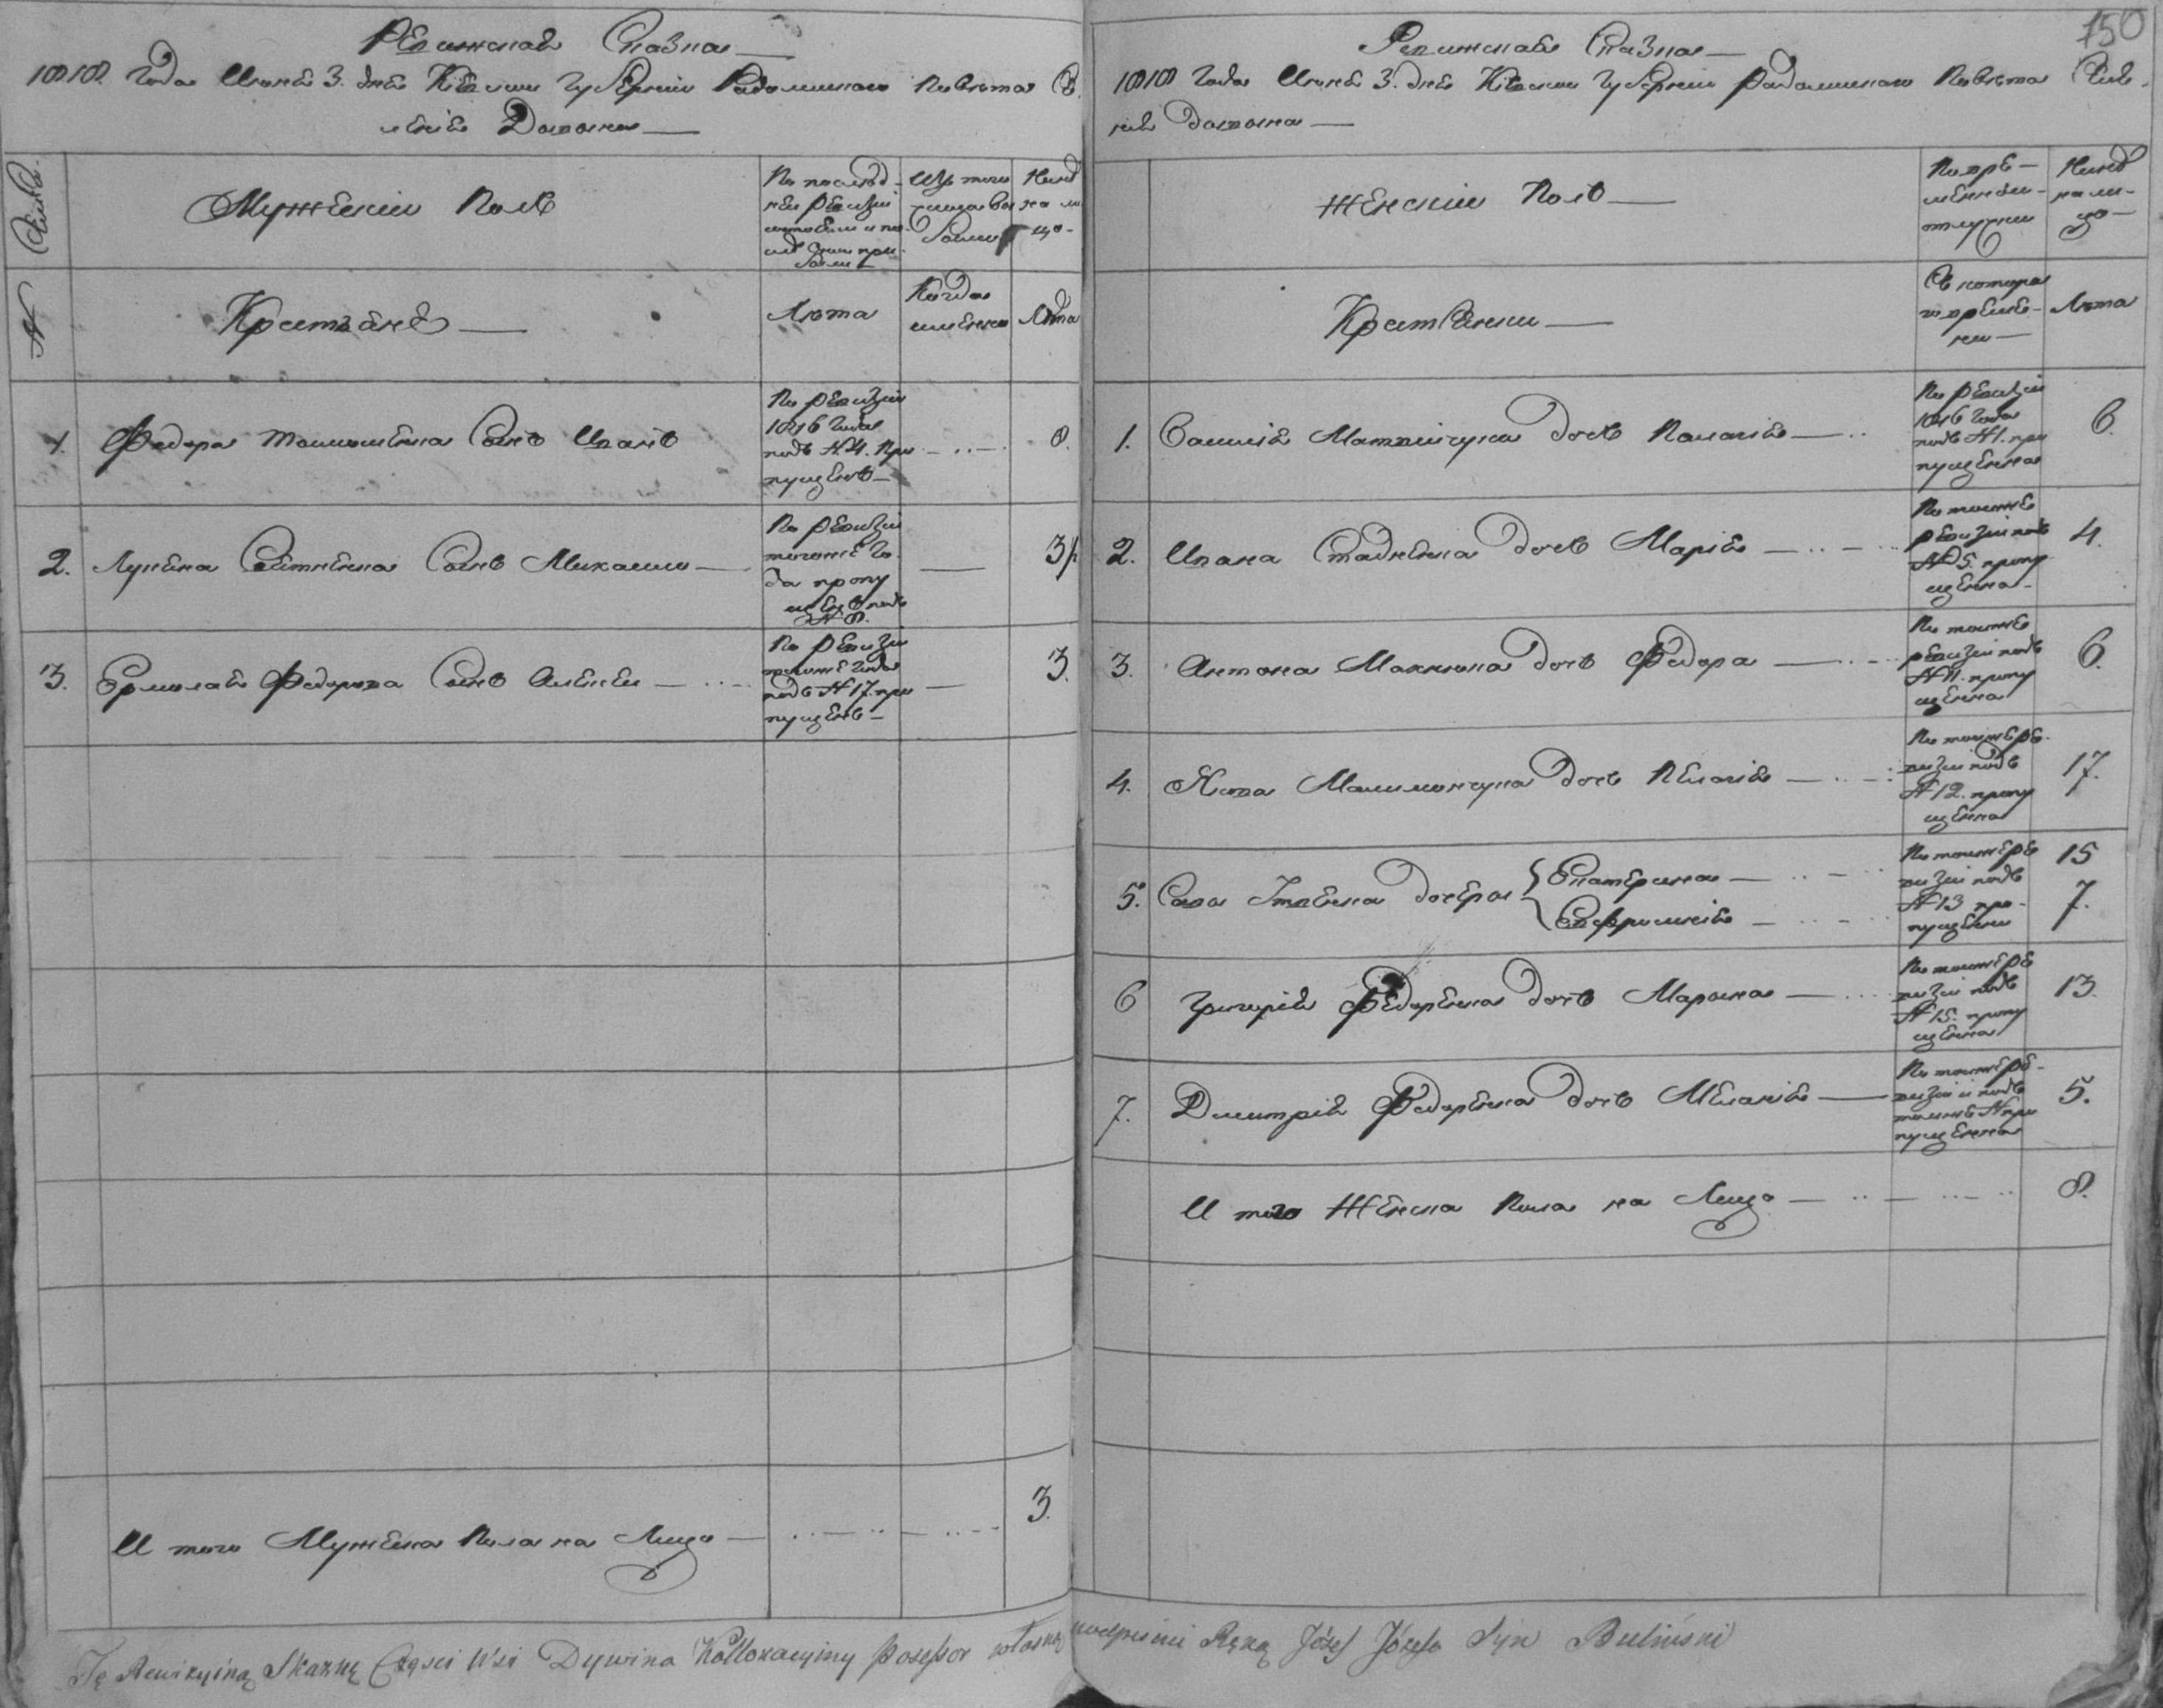 150
Ревижская Сказка
1818. Года Июня 3. дня Кіевской Губерніи Радомишльского Повѣта Се
ленія Дывина
Семья.
Мужескій Полъ
По послѣд-
ней ревизіи
состояли и по-
слѣ оной при-
были
Изъ того
числа вы
были
Нынѣ
на ли
цо
N
Крестьянъ
Лѣта
Когда
именно
Лѣта
1. Федора Тимошенка Сынъ Иванъ
По ревизіи
1816 Года
подъ N. 4. про
пущенъ
8.
2. Лукьяна Сытника Сынъ Михайло
По ревизіи
тогоже Го-
да пропу
щенъ подъ
N 8.
3/.
3. Ермолая Федорова Сынъ Алексей
По ревизіи
тогоже года
подъ N 17. про
пущенъ
3.
И того Мужеска Пола на Лицо
3.
Ревижская Сказка
1818 Года Июня 3. дня Кіевской Губерніи Радомишльского Повѣта Селе-
нія Дывина
Женскій Полъ
Во вре-
менной
отлучки
Нынѣ
на ли-
цо
Крестьянки
Съ которо
го време-
ни
Лѣта
1. Василія Матвійчука дочь Палагія
По ревизіи
1816 Года
подъ N 1. про
пущенна
6.
2. Ивана Стадника дочь Марія
По тойже
ревизіи подъ
N 5. пропу
щенна
4.
3. Антона Махнюка дочь Федора
По тойже
ревизіи подъ
N 11. пропу
щенна
6.
4. Якова Максимчука дочь Пелагія
По тойже ре-
визіи подъ
N 12. пропу
щенна
17.
5. Савы дочери
Екатерина
Евфросинія
По тойже ре
визіи подъ
N 13 про-
пущенны
15
7.
6 Григорія Федоренка дочь Марьяна
По тойже ре
визіи подъ
N 15. пропу
щенна
13.
7. Димитрія Федоренка дочь Меланія
По тойже ре-
визіи и подъ
темже N про
пущенна
5.
И того Женска Пола на Лицо
8.
Tę Rewizyiną Skazkę Części Wsi Dywina Kollokacyiny Posessor własną podpisuię Ręką Józef Józefa Syn Buliński